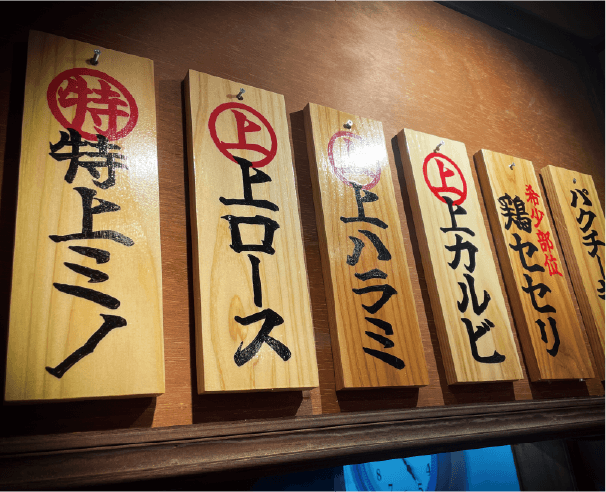 特
特上ミノ
上
上ロース
上ハラミ
上
上カルビ
希少部位
鶏セセリ
パクチー
8
5
4